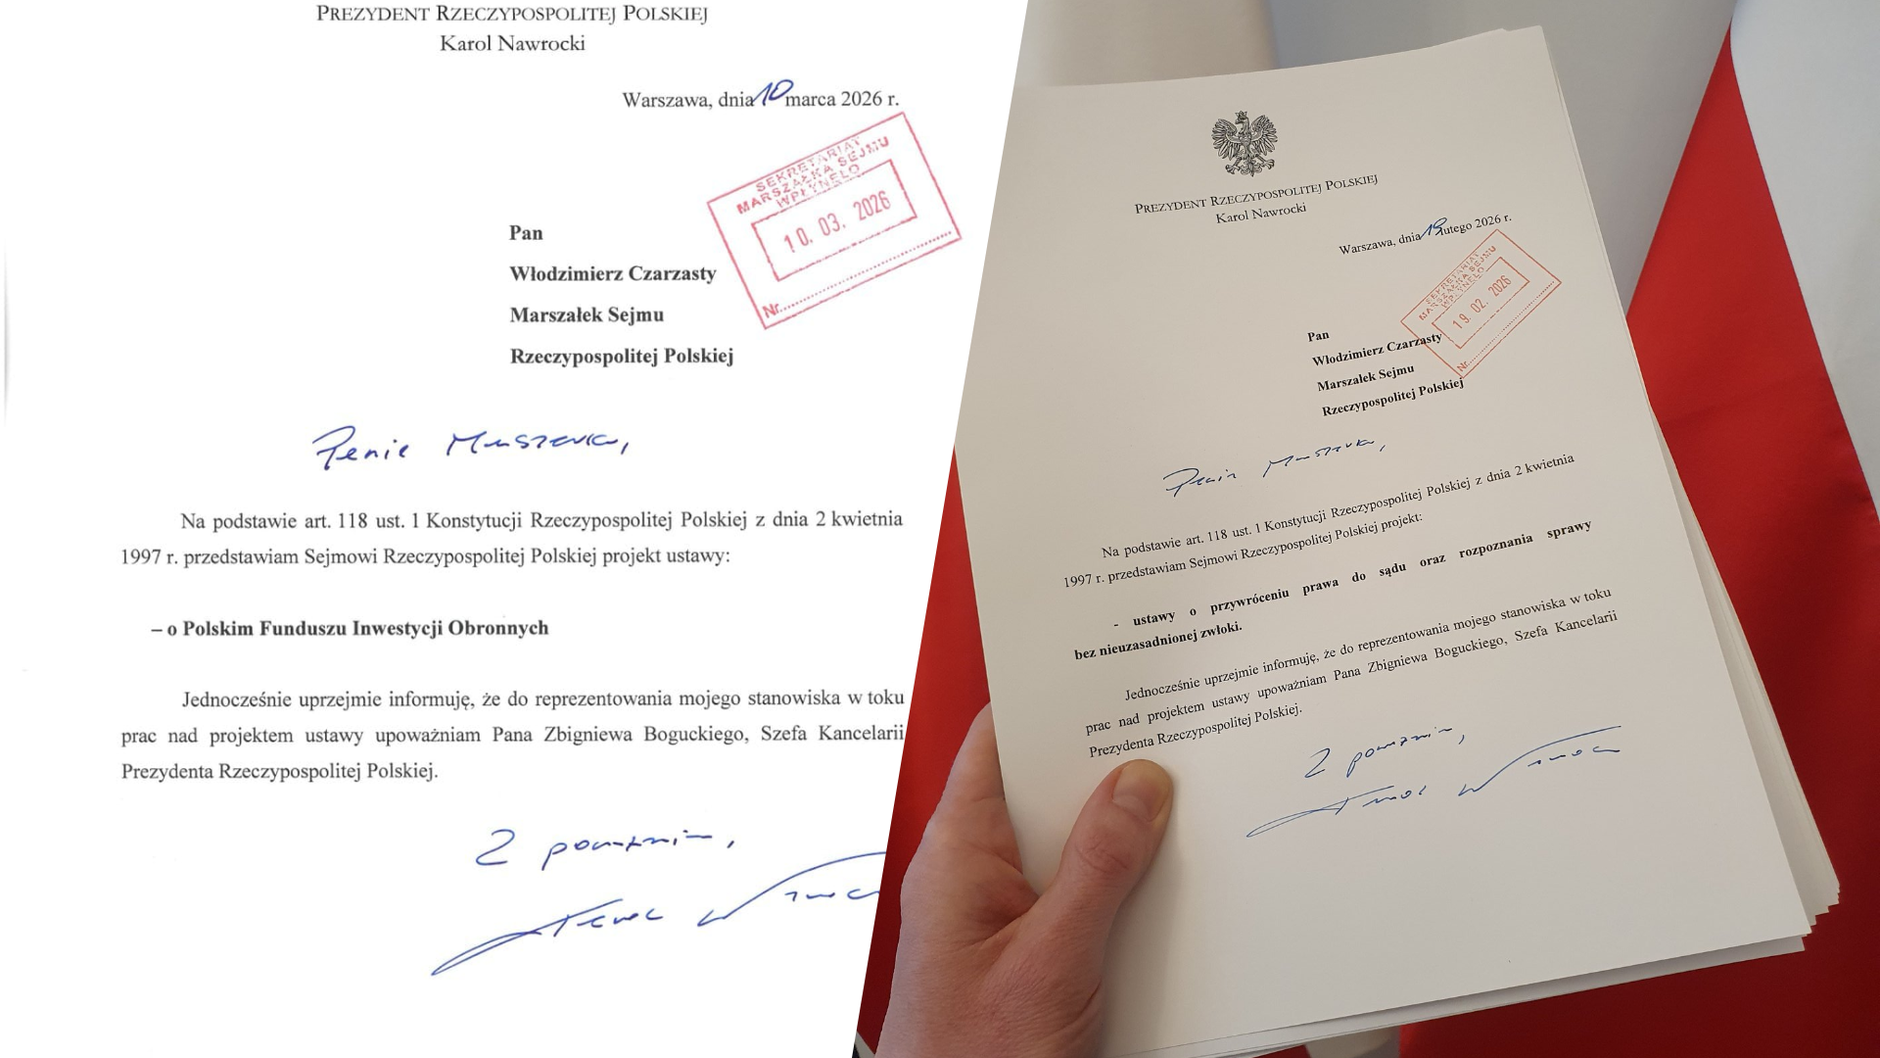 PREZYDENT RZECZYPOSPOLITEJ POLSKIEJ
Karol Nawrocki
Warszawa, dnia 10 marca 2026 r.
SEKRETARIAT
MARSZAŁKA SEJMU
WPŁYNĘŁO
10. 03. 2026
Nr
Pan
Włodzimierz Czarzasty
Marszałek Sejmu
Rzeczypospolitej Polskiej
Panie Marszałku,
Na podstawie art. 118 ust. 1 Konstytucji Rzeczypospolitej Polskiej z dnia 2 kwietnia
1997 r. przedstawiam Sejmowi Rzeczypospolitej Polskiej projekt ustawy:
– o Polskim Funduszu Inwestycji Obronnych
Jednocześnie uprzejmie informuję, że do reprezentowania mojego stanowiska w toku
prac nad projektem ustawy upoważniam Pana Zbigniewa Boguckiego, Szefa Kancelarii
Prezydenta Rzeczypospolitej Polskiej.
Z poważaniem,
PREZYDENT RZECZYPOSPOLITEJ POLSKIEJ
Karol Nawrocki
Warszawa, dnia 19 lutego 2026 r.
SEKRETARIAT
MARSZAŁKA SEJMU
WPŁYNĘŁO
19. 02. 2026
Nr
Pan
Włodzimierz Czarzasty
Marszałek Sejmu
Rzeczypospolitej Polskiej
Panie Marszałku,
Na podstawie art. 118 ust. 1 Konstytucji Rzeczypospolitej Polskiej z dnia 2 kwietnia
1997 r. przedstawiam Sejmowi Rzeczypospolitej Polskiej projekt:
- ustawy o przywróceniu prawa do sądu oraz rozpoznania sprawy
bez nieuzasadnionej zwłoki.
Jednocześnie uprzejmie informuję, że do reprezentowania mojego stanowiska w toku
prac nad projektem ustawy upoważniam Pana Zbigniewa Boguckiego, Szefa Kancelarii
Prezydenta Rzeczypospolitej Polskiej.
Z poważaniem,